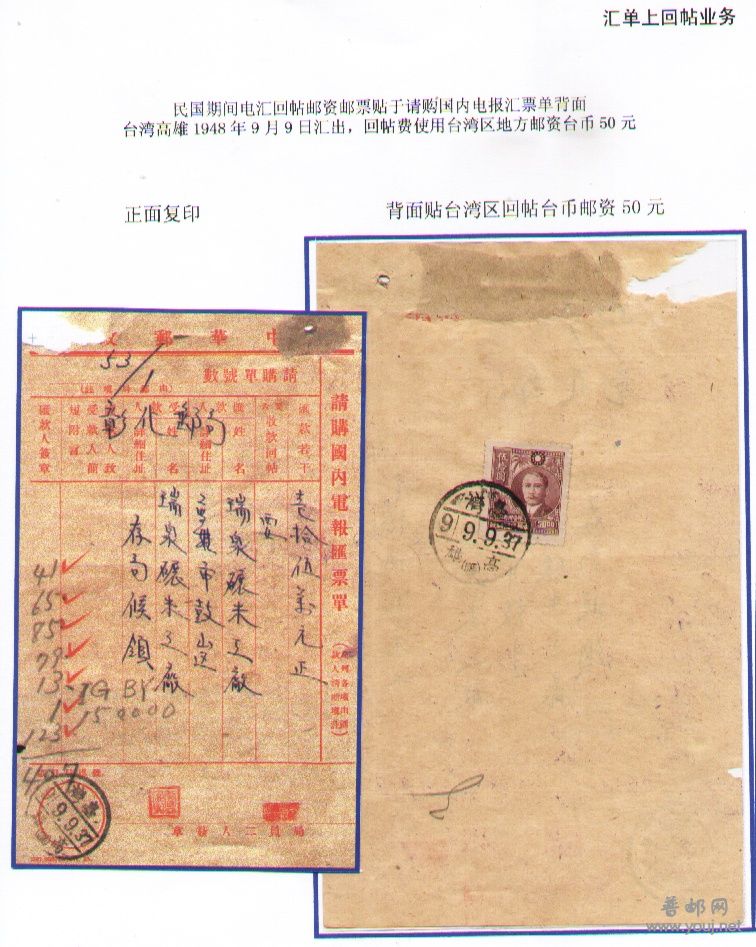 汇单上回帖业务
民国期间电汇回帖邮资邮票贴于请购国内电报汇票单背面
台湾高雄1948年9月9日汇出，回帖费使用台湾区地方邮资台币50元
正面复印
背面贴台湾区回帖台币邮资50元
中華郵政
53/1
請購單號數
請購國內電報匯票單
匯款若干
壹拾伍萬元正
要
收款回帖
瑞泉碾米工廠
高雄市鼓山区
瑞泉碾米工廠
存局候領
彰化郵局
匯款人簽章
41
65
85
79
13
1
123
407
JG BY
150000
臺灣
9.9.37
高
臺灣
9
9.9.37
高雄
50.00
普邮网
www.youj.net